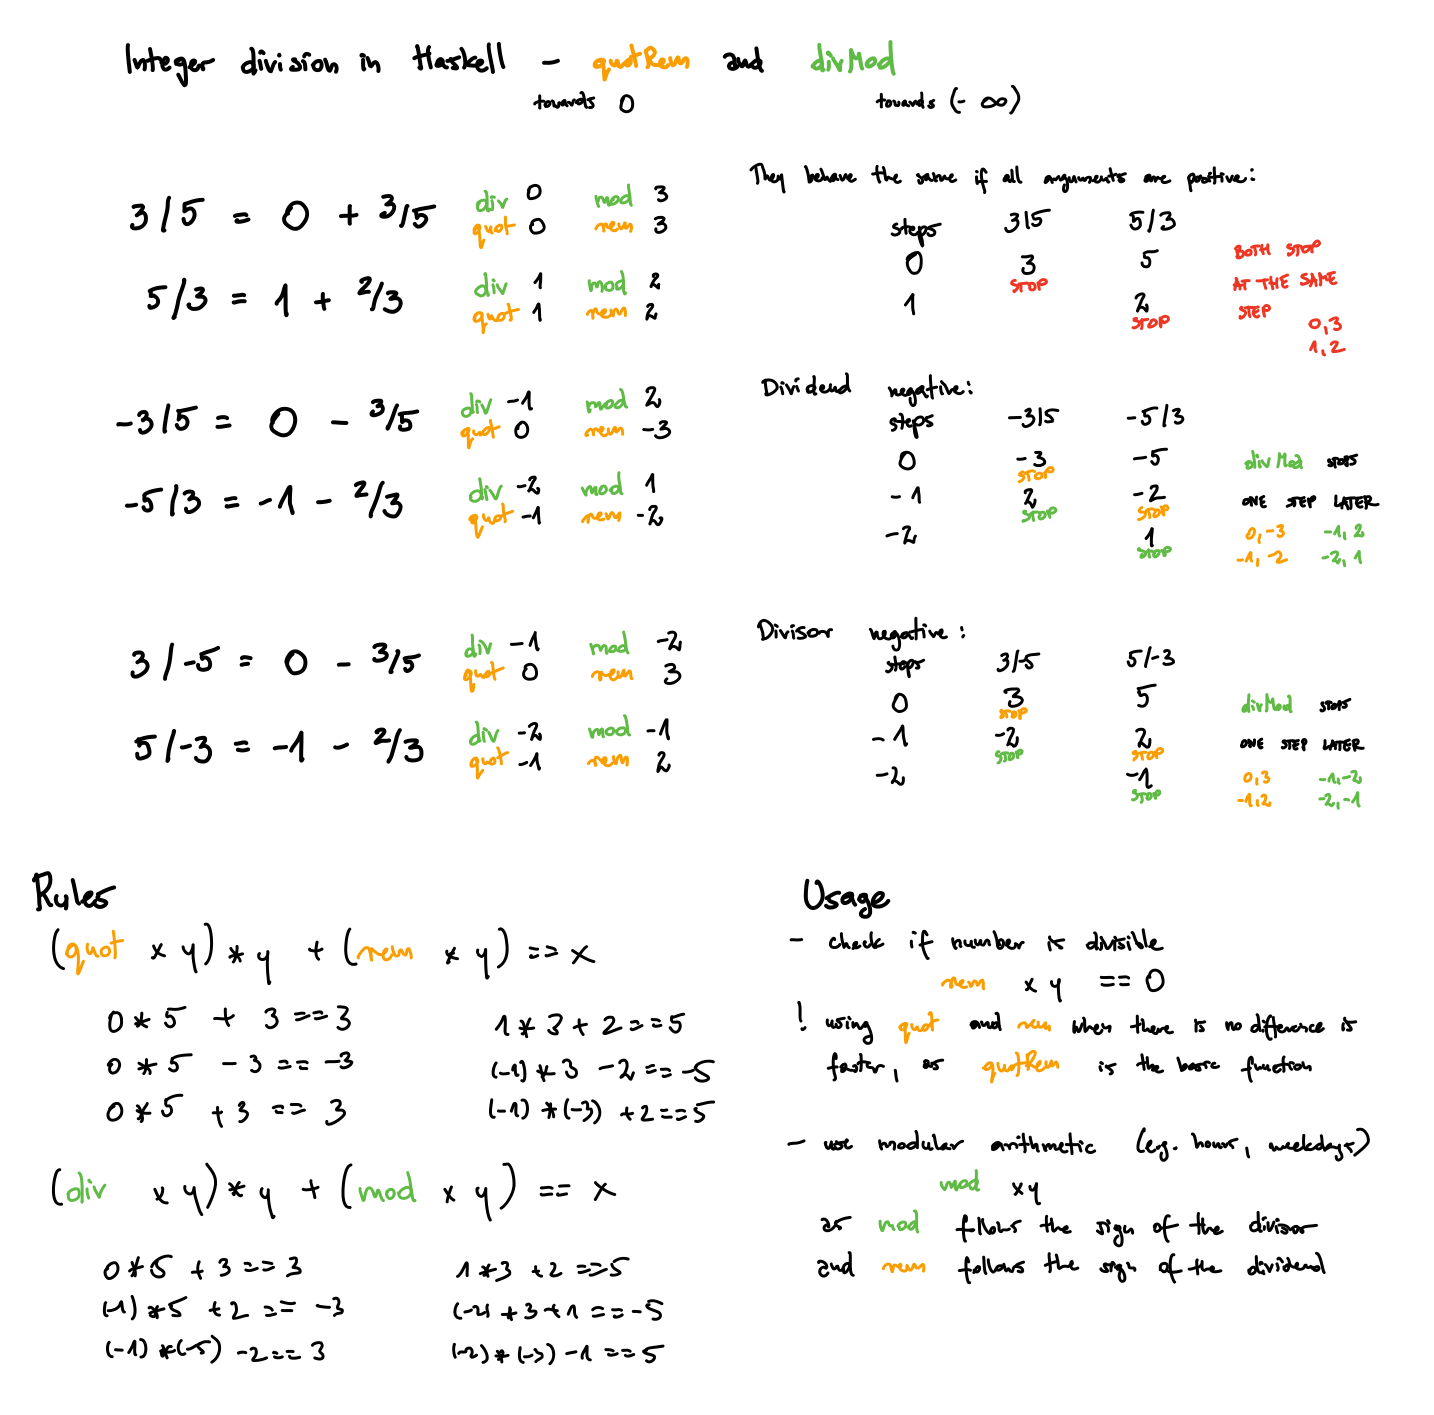 Integer division in Haskell - quotRem and divMod
towards 0 towards (- ∞)
3/5 = 0 + 3/5 div 0 mod 3
quot 0 rem 3
5/3 = 1 + 2/3 div 1 mod 2
quot 1 rem 2
-3/5 = 0 - 3/5 div -1 mod 2
quot 0 rem -3
-5/3 = -1 - 2/3 div -2 mod 1
quot -1 rem -2
3/-5 = 0 - 3/5 div -1 mod -2
quot 0 rem 3
5/-3 = -1 - 2/3 div -2 mod -1
quot -1 rem 2
They behave the same if all arguments are positive:
steps 3/5 5/3
0 3 5
STOP
1 2
STOP
BOTH STOP
AT THE SAME
STEP
0,3
1,2
Dividend negative:
steps -3/5 -5/3
0 -3 -5
STOP
-1 2 -2
STOP STOP
-2 1
STOP
divMod STOPS
ONE STEP LATER
0,-3 -1,2
-1,-2 -2,1
Divisor negative:
steps 3/-5 5/-3
0 3 5
STOP
-1 -2 2
STOP STOP
-2 -1
STOP
divMod STOPS
ONE STEP LATER
0,3 -1,-2
-1,2 -2,-1
Rules
(quot x y) * y + (rem x y) == x
0 * 5 + 3 == 3 1 * 3 + 2 == 5
0 * 5 - 3 == -3 (-1) * 3 - 2 == -5
0 * 5 + 3 == 3 (-1) * (-3) + 2 == 5
(div x y) * y + (mod x y) == x
0 * 5 + 3 == 3 1 * 3 + 2 == 5
(-1) * 5 + 2 == -3 (-2) + 3 + 1 == -5
(-1) * (-5) - 2 == 3 (-2) * (-3) - 1 == 5
Usage
- check if number is divisible
rem x y == 0
! using quot and rem when there is no difference is
faster, as quotRem is the basic function
- use modular arithmetic (e.g. hours, weekdays)
mod x y
as mod follows the sign of the divisor
and rem follows the sign of the dividend